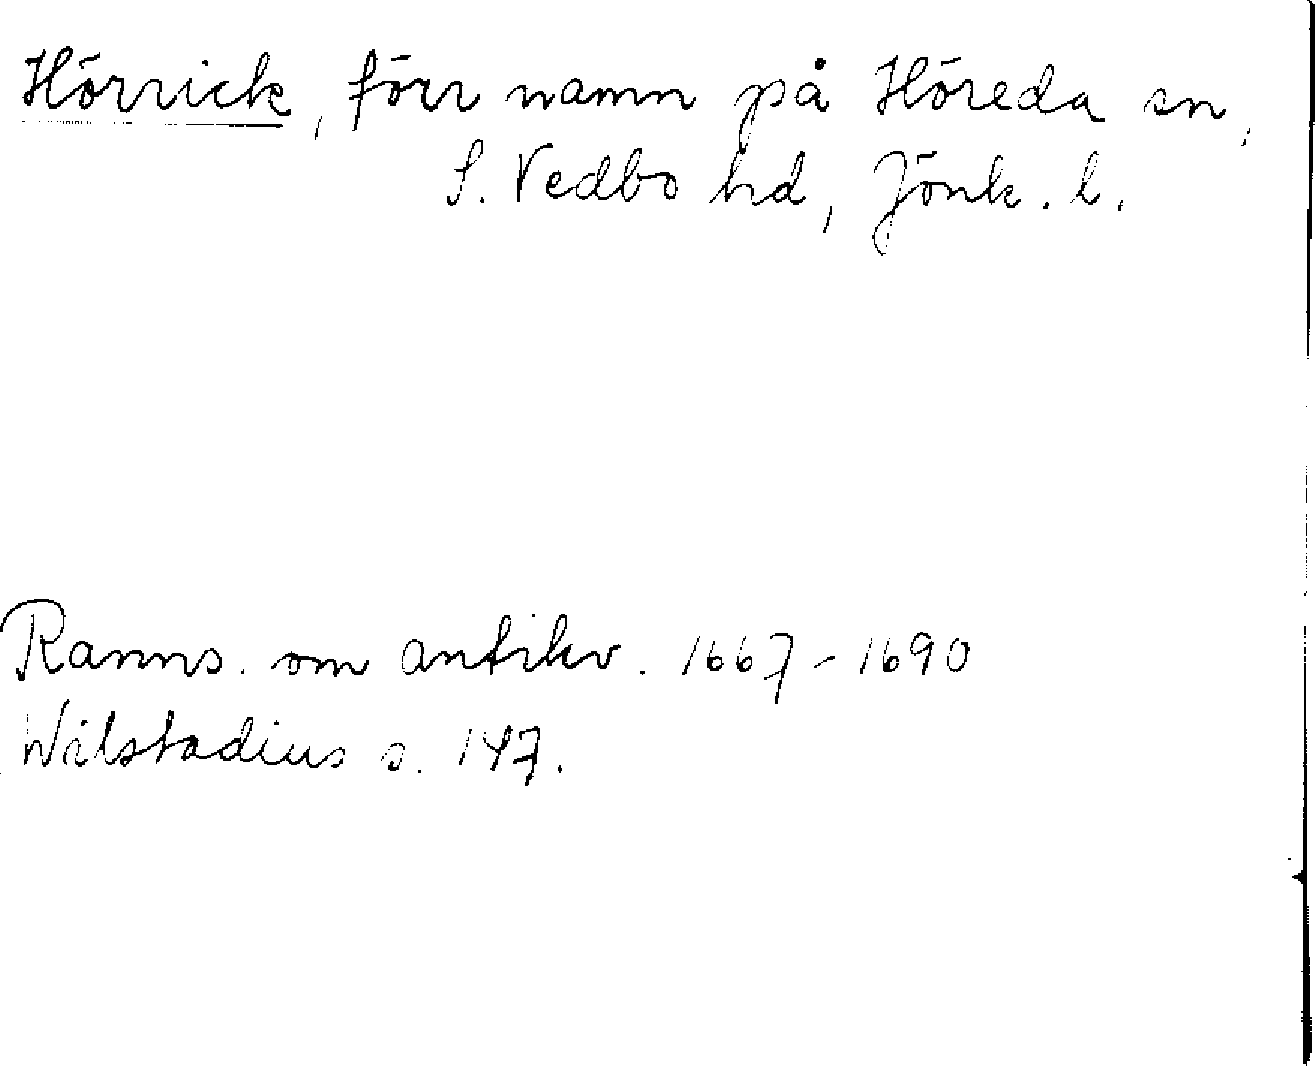 Hörrick, förr namn på Höreda sn,
S. Vedbo hd, Jönk. l.
Ranns. om antikv. 1667-1690
Wilstadius s. 147.